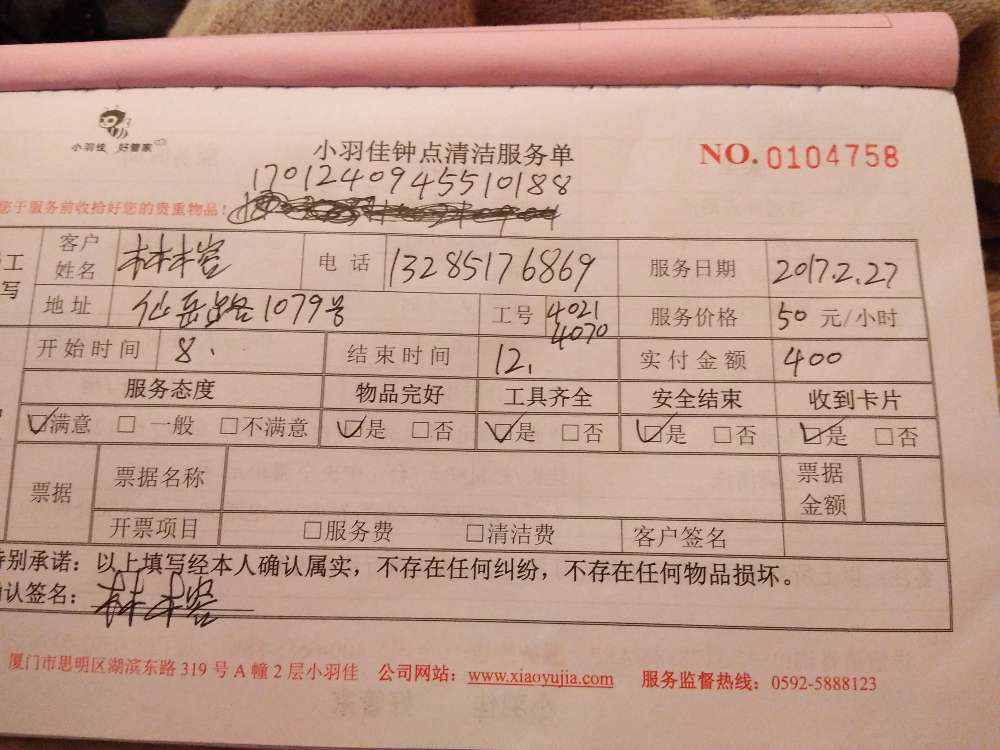 小羽佳 好管家
小羽佳钟点清洁服务单
NO. 0104758
17012409455510188
您于服务前收拾好您的贵重物品!
工
写
客户姓名 林 电话 13285176869 服务日期 2017.2.27
地址 仙岳路1079号 工号 4021 4070 服务价格 50 元/小时
开始时间 8. 结束时间 12. 实付金额 400
服务态度 物品完好 工具齐全 安全结束 收到卡片
☑满意 □ 一般 □不满意 ☑是 □否 ☑是 □否 ☑是 □否 ☑是 □否
票据 票据名称 票据金额
开票项目 □服务费 □清洁费 客户签名
特别承诺:以上填写经本人确认属实,不存在任何纠纷,不存在任何物品损坏。
确认签名: 林
厦门市思明区湖滨东路 319 号 A 幢 2 层小羽佳 公司网站:www.xiaoyujia.com 服务监督热线:0592-5888123